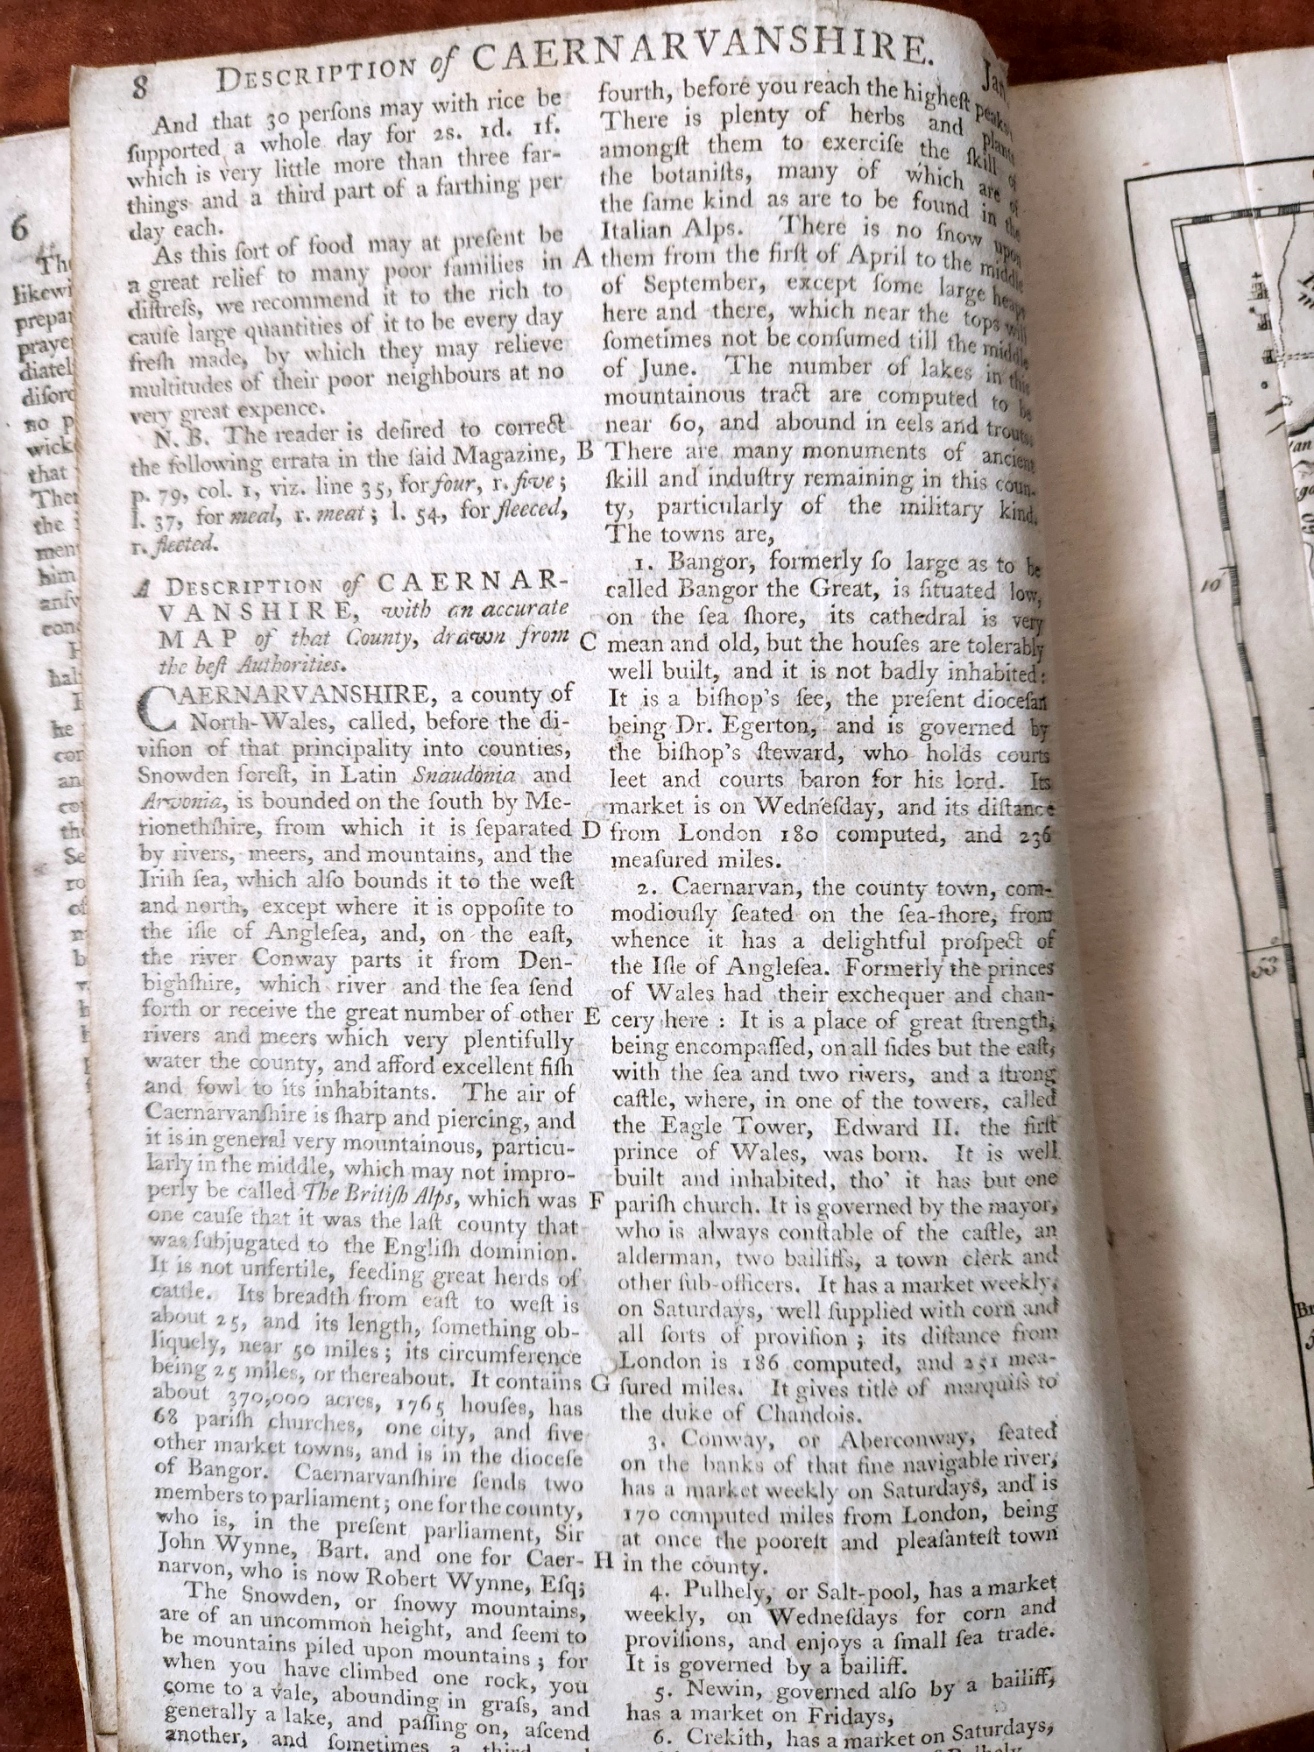 8 DESCRIPTION of CAERNARVANSHIRE. Jan.
And that 30 perſons may with rice be
ſupported a whole day for 2s. 1d. 1f.
which is very little more than three far-
things and a third part of a farthing per
day each.
As this ſort of food may at preſent be
a great relief to many poor families in A
diſtreſs, we recommend it to the rich to
cauſe large quantities of it to be every day
freſh made, by which they may relieve
multitudes of their poor neighbours at no
very great expence.
N. B. The reader is deſired to correct
the following errata in the ſaid Magazine, B
p. 79, col. 1, viz. line 35, for four, r. five;
l. 37, for meal, r. meat; l. 54, for fleeced,
r. fleeted.
A DESCRIPTION of CAERNAR-
VANSHIRE, with an accurate
MAP of that County, drawn from C
the beſt Authorities.
CAERNARVANSHIRE, a county of
North-Wales, called, before the di-
viſion of that principality into counties,
Snowden foreſt, in Latin Snaudonia and
Arvonia, is bounded on the ſouth by Me-
rionethſhire, from which it is ſeparated D
by rivers, meers, and mountains, and the
Iriſh ſea, which alſo bounds it to the weſt
and north, except where it is oppoſite to
the iſle of Angleſea, and, on the eaſt,
the river Conway parts it from Den-
bighſhire, which river and the ſea ſend
forth or receive the great number of other E
rivers and meers which very plentifully
water the county, and afford excellent fiſh
and fowl to its inhabitants. The air of
Caernarvanſhire is ſharp and piercing, and
it is in general very mountainous, particu-
larly in the middle, which may not impro-
perly be called The Britiſh Alps, which was F
one cauſe that it was the laſt county that
was ſubjugated to the Engliſh dominion.
It is not unfertile, feeding great herds of
cattle. Its breadth from eaſt to weſt is
about 25, and its length, ſomething ob-
liquely, near 50 miles; its circumference
being 25 miles, or thereabout. It contains G
about 370,000 acres, 1765 houſes, has
68 pariſh churches, one city, and five
other market towns, and is in the dioceſe
of Bangor. Caernarvanſhire ſends two
members to parliament; one for the county,
who is, in the preſent parliament, Sir
John Wynne, Bart. and one for Caer- H
narvon, who is now Robert Wynne, Eſq;
The Snowden, or ſnowy mountains,
are of an uncommon height, and ſeem to
be mountains piled upon mountains; for
when you have climbed one rock, you
come to a vale, abounding in graſs, and
generally a lake, and paſſing on, aſcend
another, and ſometimes a third
fourth, before you reach the higheſt peaks.
There is plenty of herbs and plants
amongſt them to exerciſe the ſkill of
the botaniſts, many of which are of
the ſame kind as are to be found in the
Italian Alps. There is no ſnow upon
them from the firſt of April to the middle
of September, except ſome large heaps
here and there, which near the tops will
ſometimes not be conſumed till the middle
of June. The number of lakes in this
mountainous tract are computed to be
near 60, and abound in eels and trouts.
There are many monuments of ancient
ſkill and induſtry remaining in this coun-
ty, particularly of the military kind.
The towns are,
1. Bangor, formerly ſo large as to be
called Bangor the Great, is ſituated low,
on the ſea ſhore, its cathedral is very
mean and old, but the houſes are tolerably
well built, and it is not badly inhabited:
It is a biſhop's ſee, the preſent dioceſan
being Dr. Egerton, and is governed by
the biſhop's ſteward, who holds courts
leet and courts baron for his lord. Its
market is on Wedneſday, and its diſtance
from London 180 computed, and 236
meaſured miles.
2. Caernarvan, the county town, com-
modiouſly ſeated on the ſea-ſhore, from
whence it has a delightful proſpect of
the Iſle of Angleſea. Formerly the princes
of Wales had their exchequer and chan-
cery here : It is a place of great ſtrength,
being encompaſſed, on all ſides but the eaſt,
with the ſea and two rivers, and a ſtrong
caſtle, where, in one of the towers, called
the Eagle Tower, Edward II. the firſt
prince of Wales, was born. It is well
built and inhabited, tho' it has but one
pariſh church. It is governed by the mayor,
who is always conſtable of the caſtle, an
alderman, two bailiffs, a town clerk and
other ſub-officers. It has a market weekly,
on Saturdays, well ſupplied with corn and
all ſorts of proviſion; its diſtance from
London is 186 computed, and 251 mea-
ſured miles. It gives title of marquiſs to
the duke of Chandois.
3. Conway, or Aberconway, ſeated
on the banks of that fine navigable river,
has a market weekly on Saturdays, and is
170 computed miles from London, being
at once the pooreſt and pleaſanteſt town
in the county.
4. Pulhely, or Salt-pool, has a market
weekly, on Wedneſdays for corn and
proviſions, and enjoys a ſmall ſea trade.
It is governed by a bailiff.
5. Newin, governed alſo by a bailiff,
has a market on Fridays,
6. Crekith, has a market on Saturdays,
6
likewi
prepar
praye
diatel
diſord
no p
wick
that
the
men
him
10
53